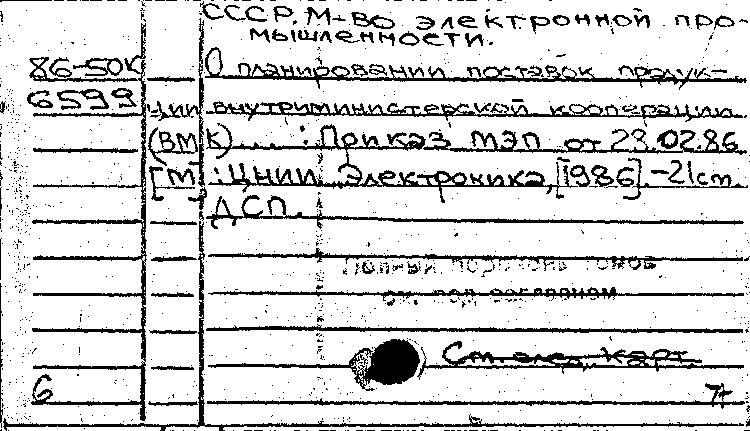 СССР. М-во электронной про-
мышленности.
86-50К О планировании поставок продук-
6599 ции внутриминистерской кооперации
(ВМК)... : Приказ МЭП от 23.02.86
[М]: ЦНИИ Электроника, [1986]. -21 см.
ДСП.
Полный перечень томов
см. под заглавием
См. след. карт.
6